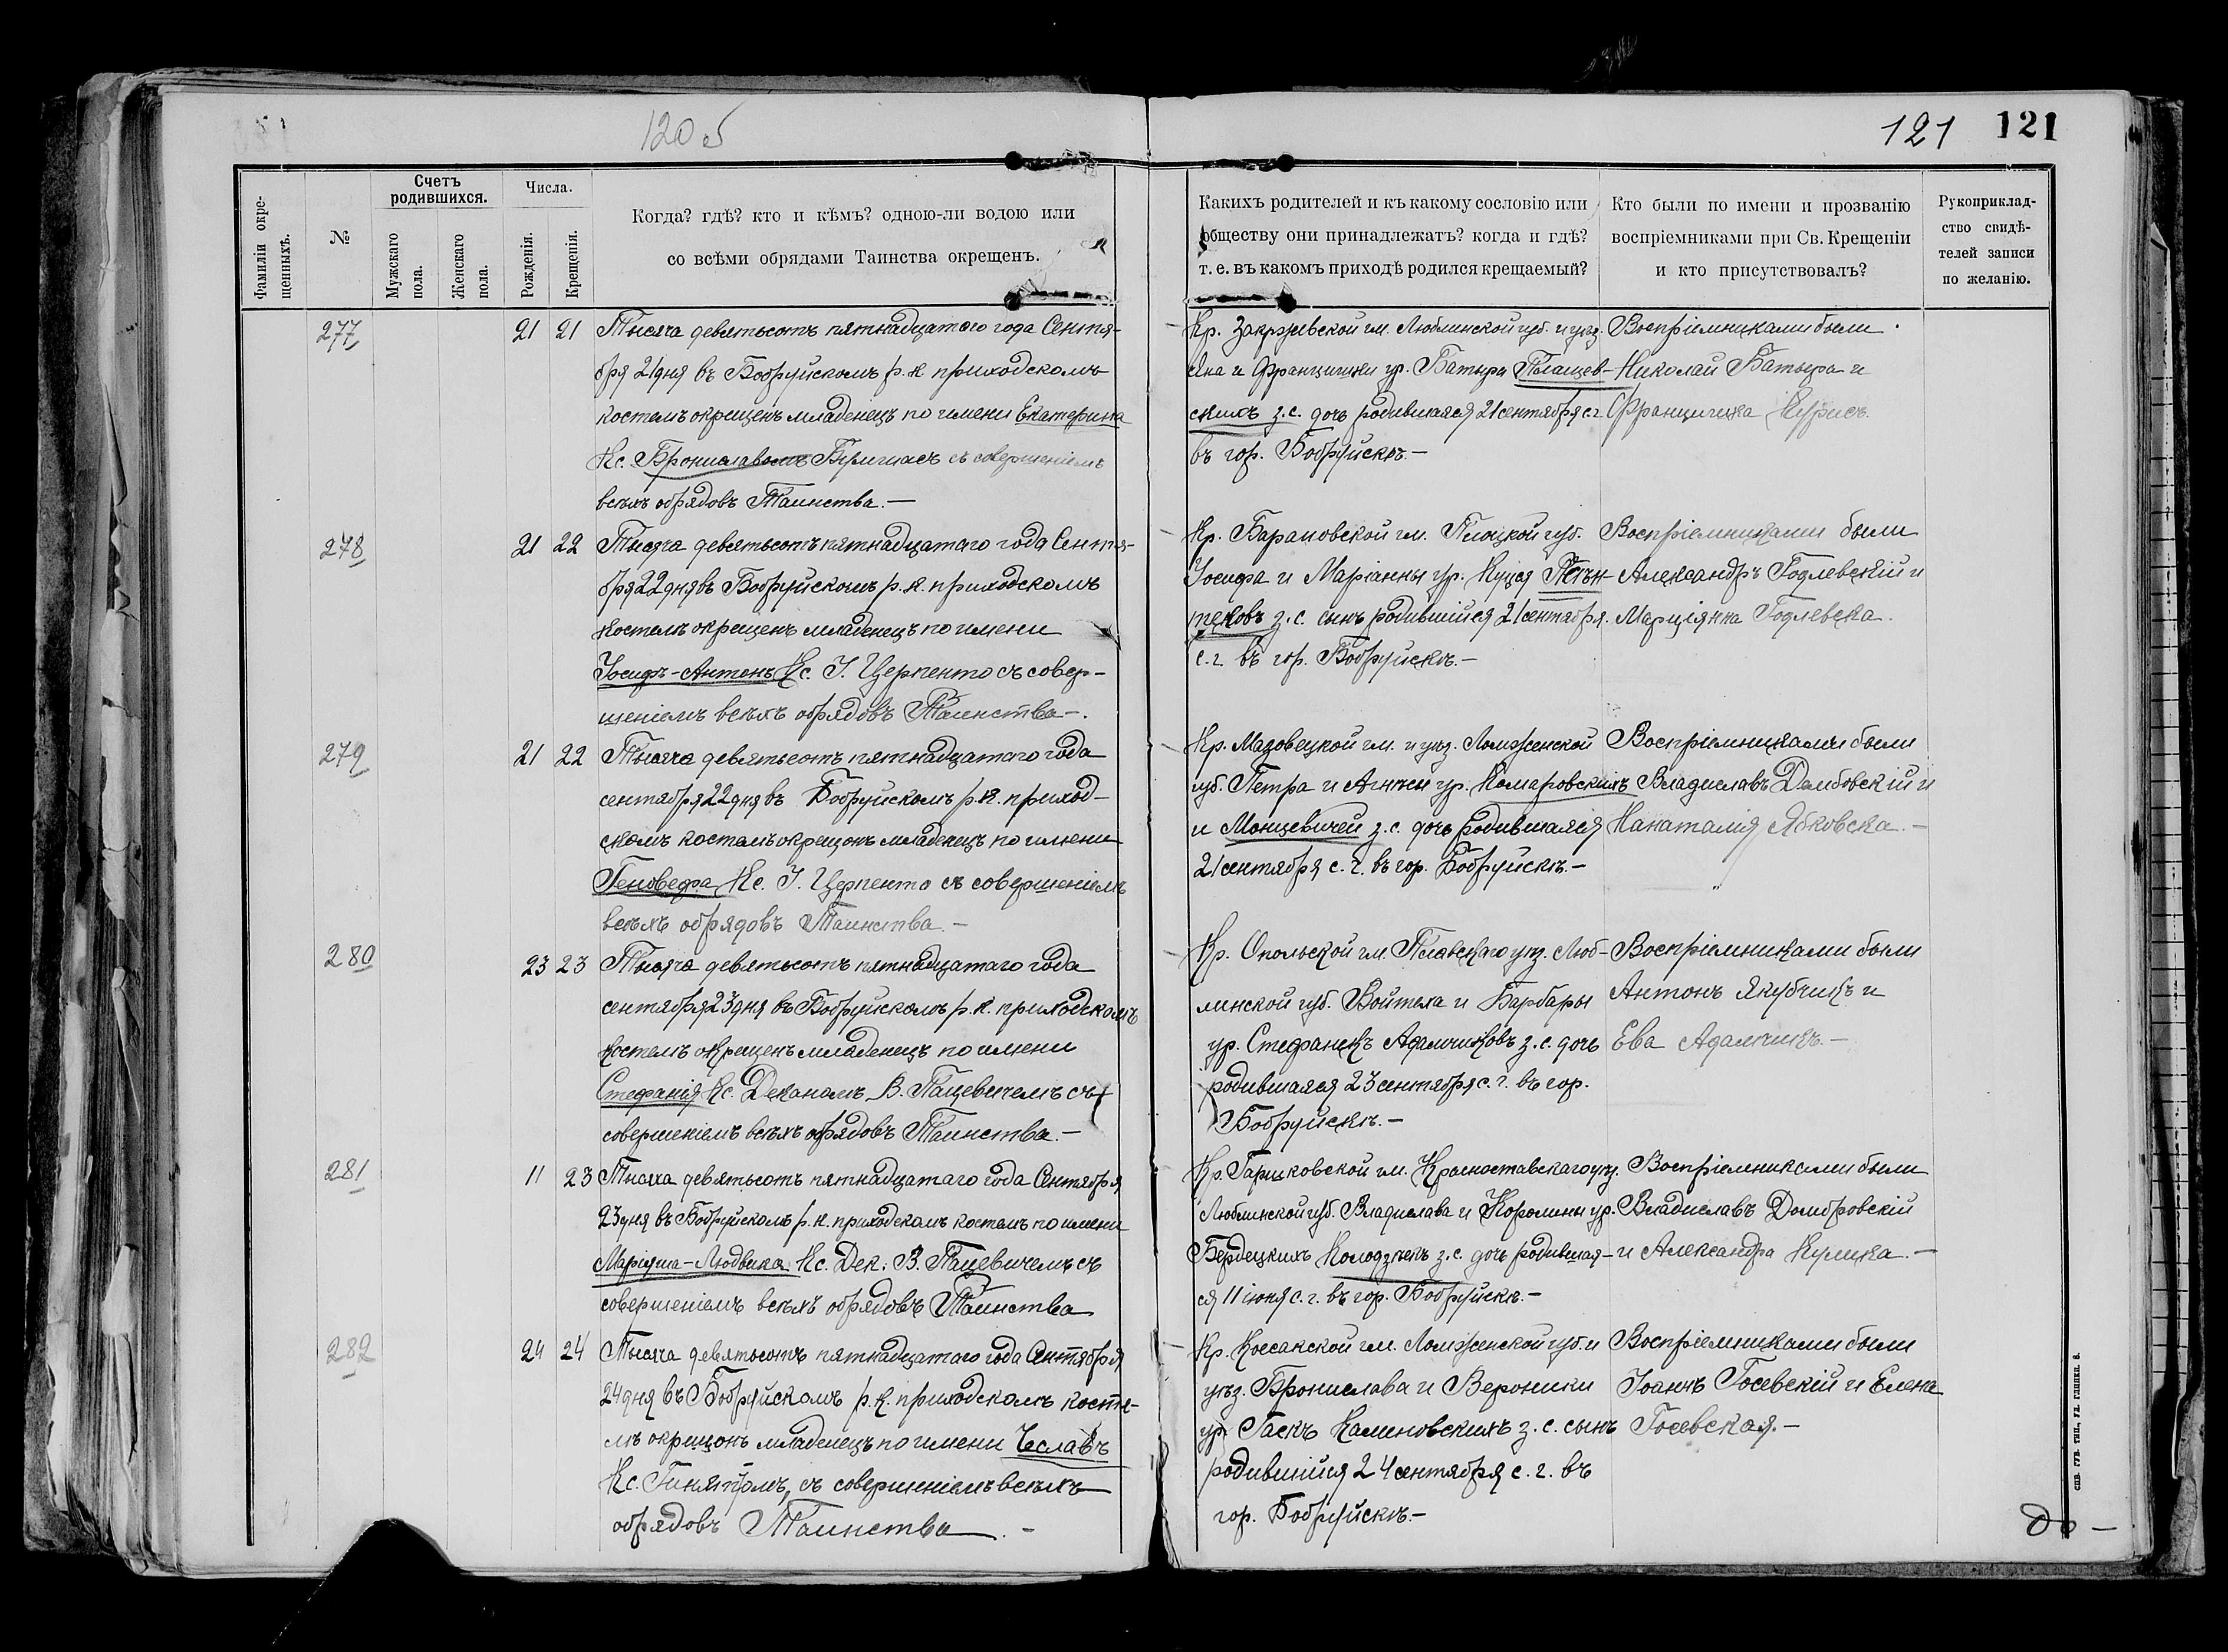 120 б
121 121
Фамиліи окре-
щенныхъ.
№
Счетъ
родившихся.
Мужскаго
пола.
Женскаго
пола.
Числа.
Рожденія.
Крещенія.
Когда? гдѣ? кто и кѣмъ? одною-ли водою или
со всѣми обрядами Таинства окрещенъ.
Какихъ родителей и къ какому сословію или
обществу они принадлежатъ? когда и гдѣ?
т. е. въ какомъ приходѣ родился крещаемый?
Кто были по имени и прозванію
воспріемниками при Св. Крещеніи
и кто присутствовалъ?
Рукоприклад-
ство свидѣ-
телей записи
по желанію.
277
21 21
Тысяча девятьсотъ пятнадцатаго года Сентя-
бря 21 дня въ Бобруйскомъ р. к. приходскомъ
костелѣ окрещенъ младенецъ по имени Екатерина
Кс. Брониславомъ съ совершеніемъ
всѣхъ обрядовъ Таинства.—
Кр. Закржевской гм. Люблинской губ. и уѣз.
Яна и Францишки ур. Батыра Полащев-
скихъ з. с. дочь родившаяся 21 сентября с. г.
въ гор. Бобруйскѣ.—
Воспріемниками были
Николай Батыра и
Францишка Курисъ.
278
21 22
Тысяча девятьсотъ пятнадцатаго года Сентя-
бря 22 дня въ Бобруйскомъ р. к. приходскомъ
костелѣ окрещенъ младенецъ по имени
Іосифъ-Антонъ Кс. І. Церпенто съ совер-
шеніемъ всѣхъ обрядовъ Таинства.—
Кр. Барановской гм. Плоцкой губ.
Іосифа и Маріанны ур. Куцея Пѣн-
тековъ з. с. сынъ родившійся 21 сентября
с. г. въ гор. Бобруйскѣ.—
Воспріемниками были
Александръ Годлевскій и
Марціянна Годлевска.
279
21 22
Тысяча девятьсотъ пятнадцатаго года
сентября 22 дня въ Бобруйскомъ р. к. приход-
скомъ костелѣ окрещонъ младенецъ по имени
Геновефа Кс. І. Церпенто съ совершеніемъ
всѣхъ обрядовъ Таинства.—
Кр. Мазовецкой гм. и уѣз. Ломженской
губ. Петра и Агнѣи ур. Комаровскихъ
и Монцевичей з. с. дочь родившаяся
21 сентября с. г. въ гор. Бобруйскѣ.—
Воспріемниками были
Владиславъ Дембовскій и
Канаталія Ябковска.—
280
23 23
Тысяча девятьсотъ пятнадцатаго года
сентября 23 дня въ Бобруйскомъ р. к. приходскомъ
костелѣ окрещенъ младенецъ по имени
Стефанія Кс. Деканомъ В. Пацевичемъ съ
совершеніемъ всѣхъ обрядовъ Таинства.—
Кр. Опольской гм. уѣз. Люб-
линской губ. Войтеха и Барбары
ур. Стефанекъ Адамчиковъ з. с. дочь
родившаяся 23 сентября с. г. въ гор.
Бобруйскѣ.—
Воспріемниками были
Антонъ Якубчикъ и
Ева Адамчикъ.—
281
11 23
Тысяча девятьсотъ пятнадцатаго года Сентября
23 дня въ Бобруйскомъ р. к. приходскомъ костелѣ по имени
Маріуша-Людвика Кс. Дек. В. Пацевичемъ съ
совершеніемъ всѣхъ обрядовъ Таинства
Кр. Гаршковской гм. Красноставскаго уѣз.
Люблинской губ. Владислава и Королины ур.
Бердецкихъ Колодзѣекъ з. с. дочь родившая-
ся 11 іюня с. г. въ гор. Бобруйскѣ.—
Воспріемниками были
Владиславъ Домбровскій
и Александра Кулика.—
282
24 24
Тысяча девятьсотъ пятнадцатаго года Сентября
24 дня въ Бобруйскомъ р. к. приходскомъ косте-
лѣ окрещонъ младенецъ по имени Чеславъ
Кс. съ совершеніемъ всѣхъ
обрядовъ Таинства.—
Кр. Коссакской гм. Ломженской губ. и
уѣз. Бронислава и Вероники
ур. Гаскъ Калиновскихъ з. с. сынъ
родившійся 24 сентября с. г. въ
гор. Бобруйскѣ.—
Воспріемниками были
Іоаннъ Госевскій и Елена
Госевская.—